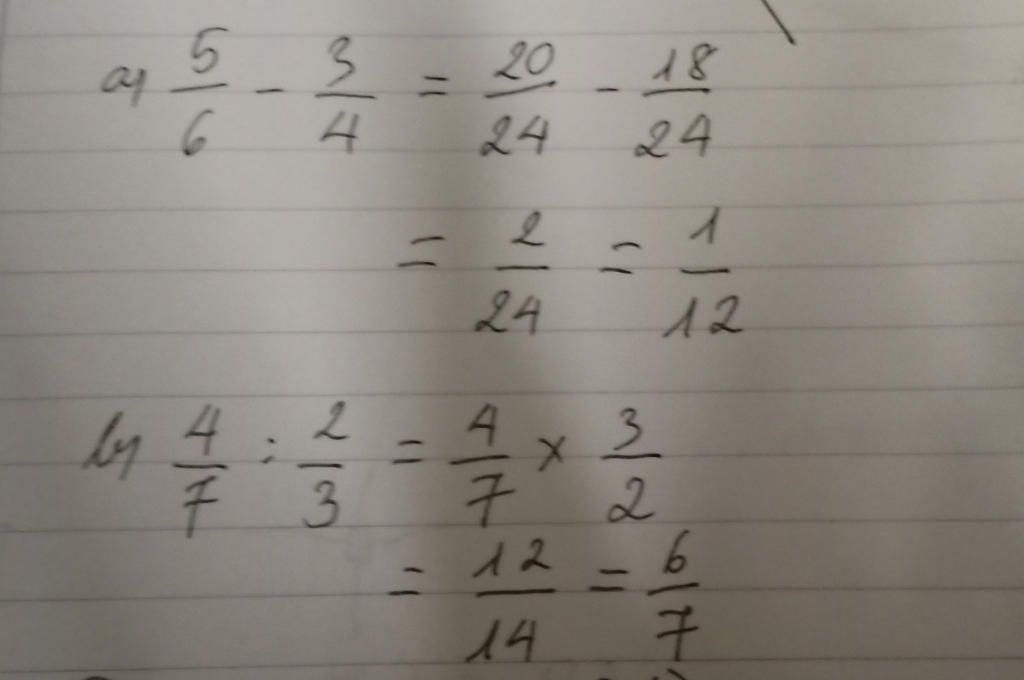 a) 5/6 - 3/4 = 20/24 - 18/24
= 2/24 = 1/12
b) 4/7 : 2/3 = 4/7 × 3/2
= 12/14 = 6/7